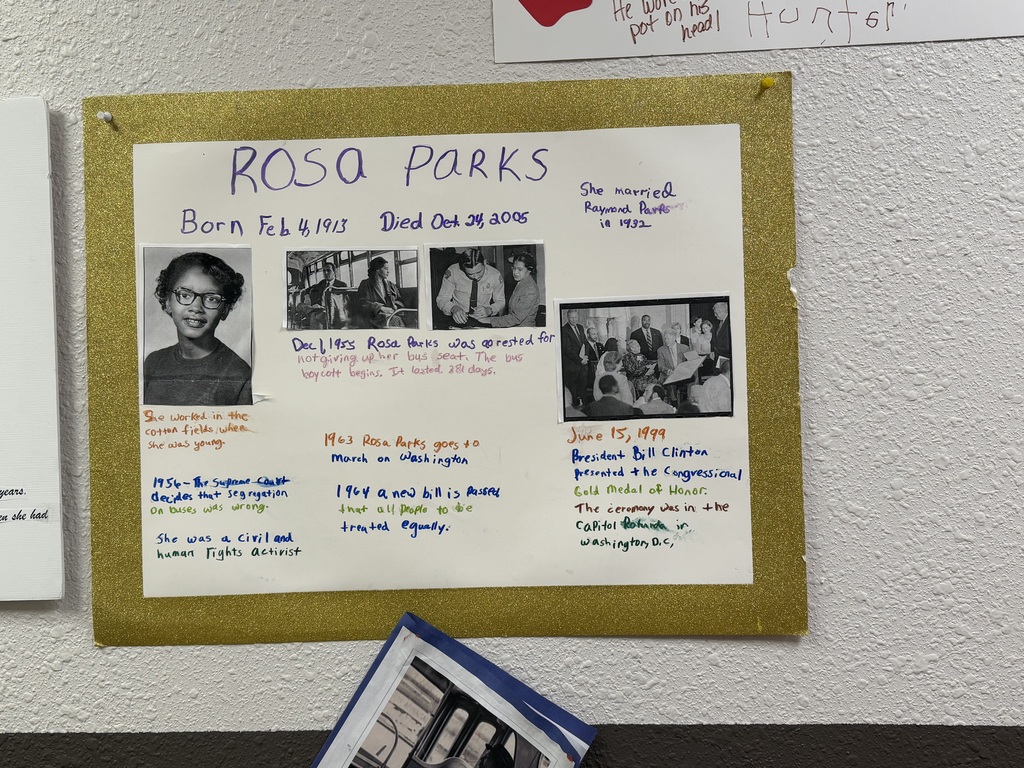 He wore
pot on his
head!
Hunter
ROSA PARKS
Born Feb 4, 1913 Died Oct 24, 2005
She married
Raymond Parks
in 1932
Dec 1, 1955 Rosa Parks was arrested for
not giving up her bus seat. The bus
boycott begins. It lasted 381 days.
She worked in the
cotton fields when
she was young.
1956 - The Supreme Court
decides that segregation
on buses was wrong.
She was a civil and
human rights activist
1963 Rosa Parks goes to
march on Washington
1964 a new bill is passed
that all people to be
treated equally.
June 15, 1999
President Bill Clinton
presented the Congressional
Gold Medal of Honor.
The ceremony was in the
Capitol Rotunda in
Washington, D.C,
years.
en she had